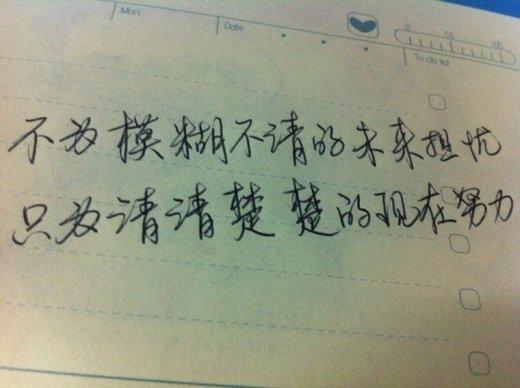 Mon
Date
0 50 100
To do list
不为模糊不清的未来担忧
只为清清楚楚的现在努力